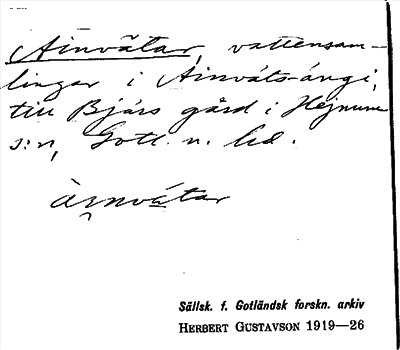 Ainvätar, vattensam-
lingar i Ainväts-ängi,
till Bjärs gård i Hejnum
s:n, Gotl. n. hd.
àinvátar
Sällsk. f. Gotländsk forskn. arkiv
HERBERT GUSTAVSON 1919—26